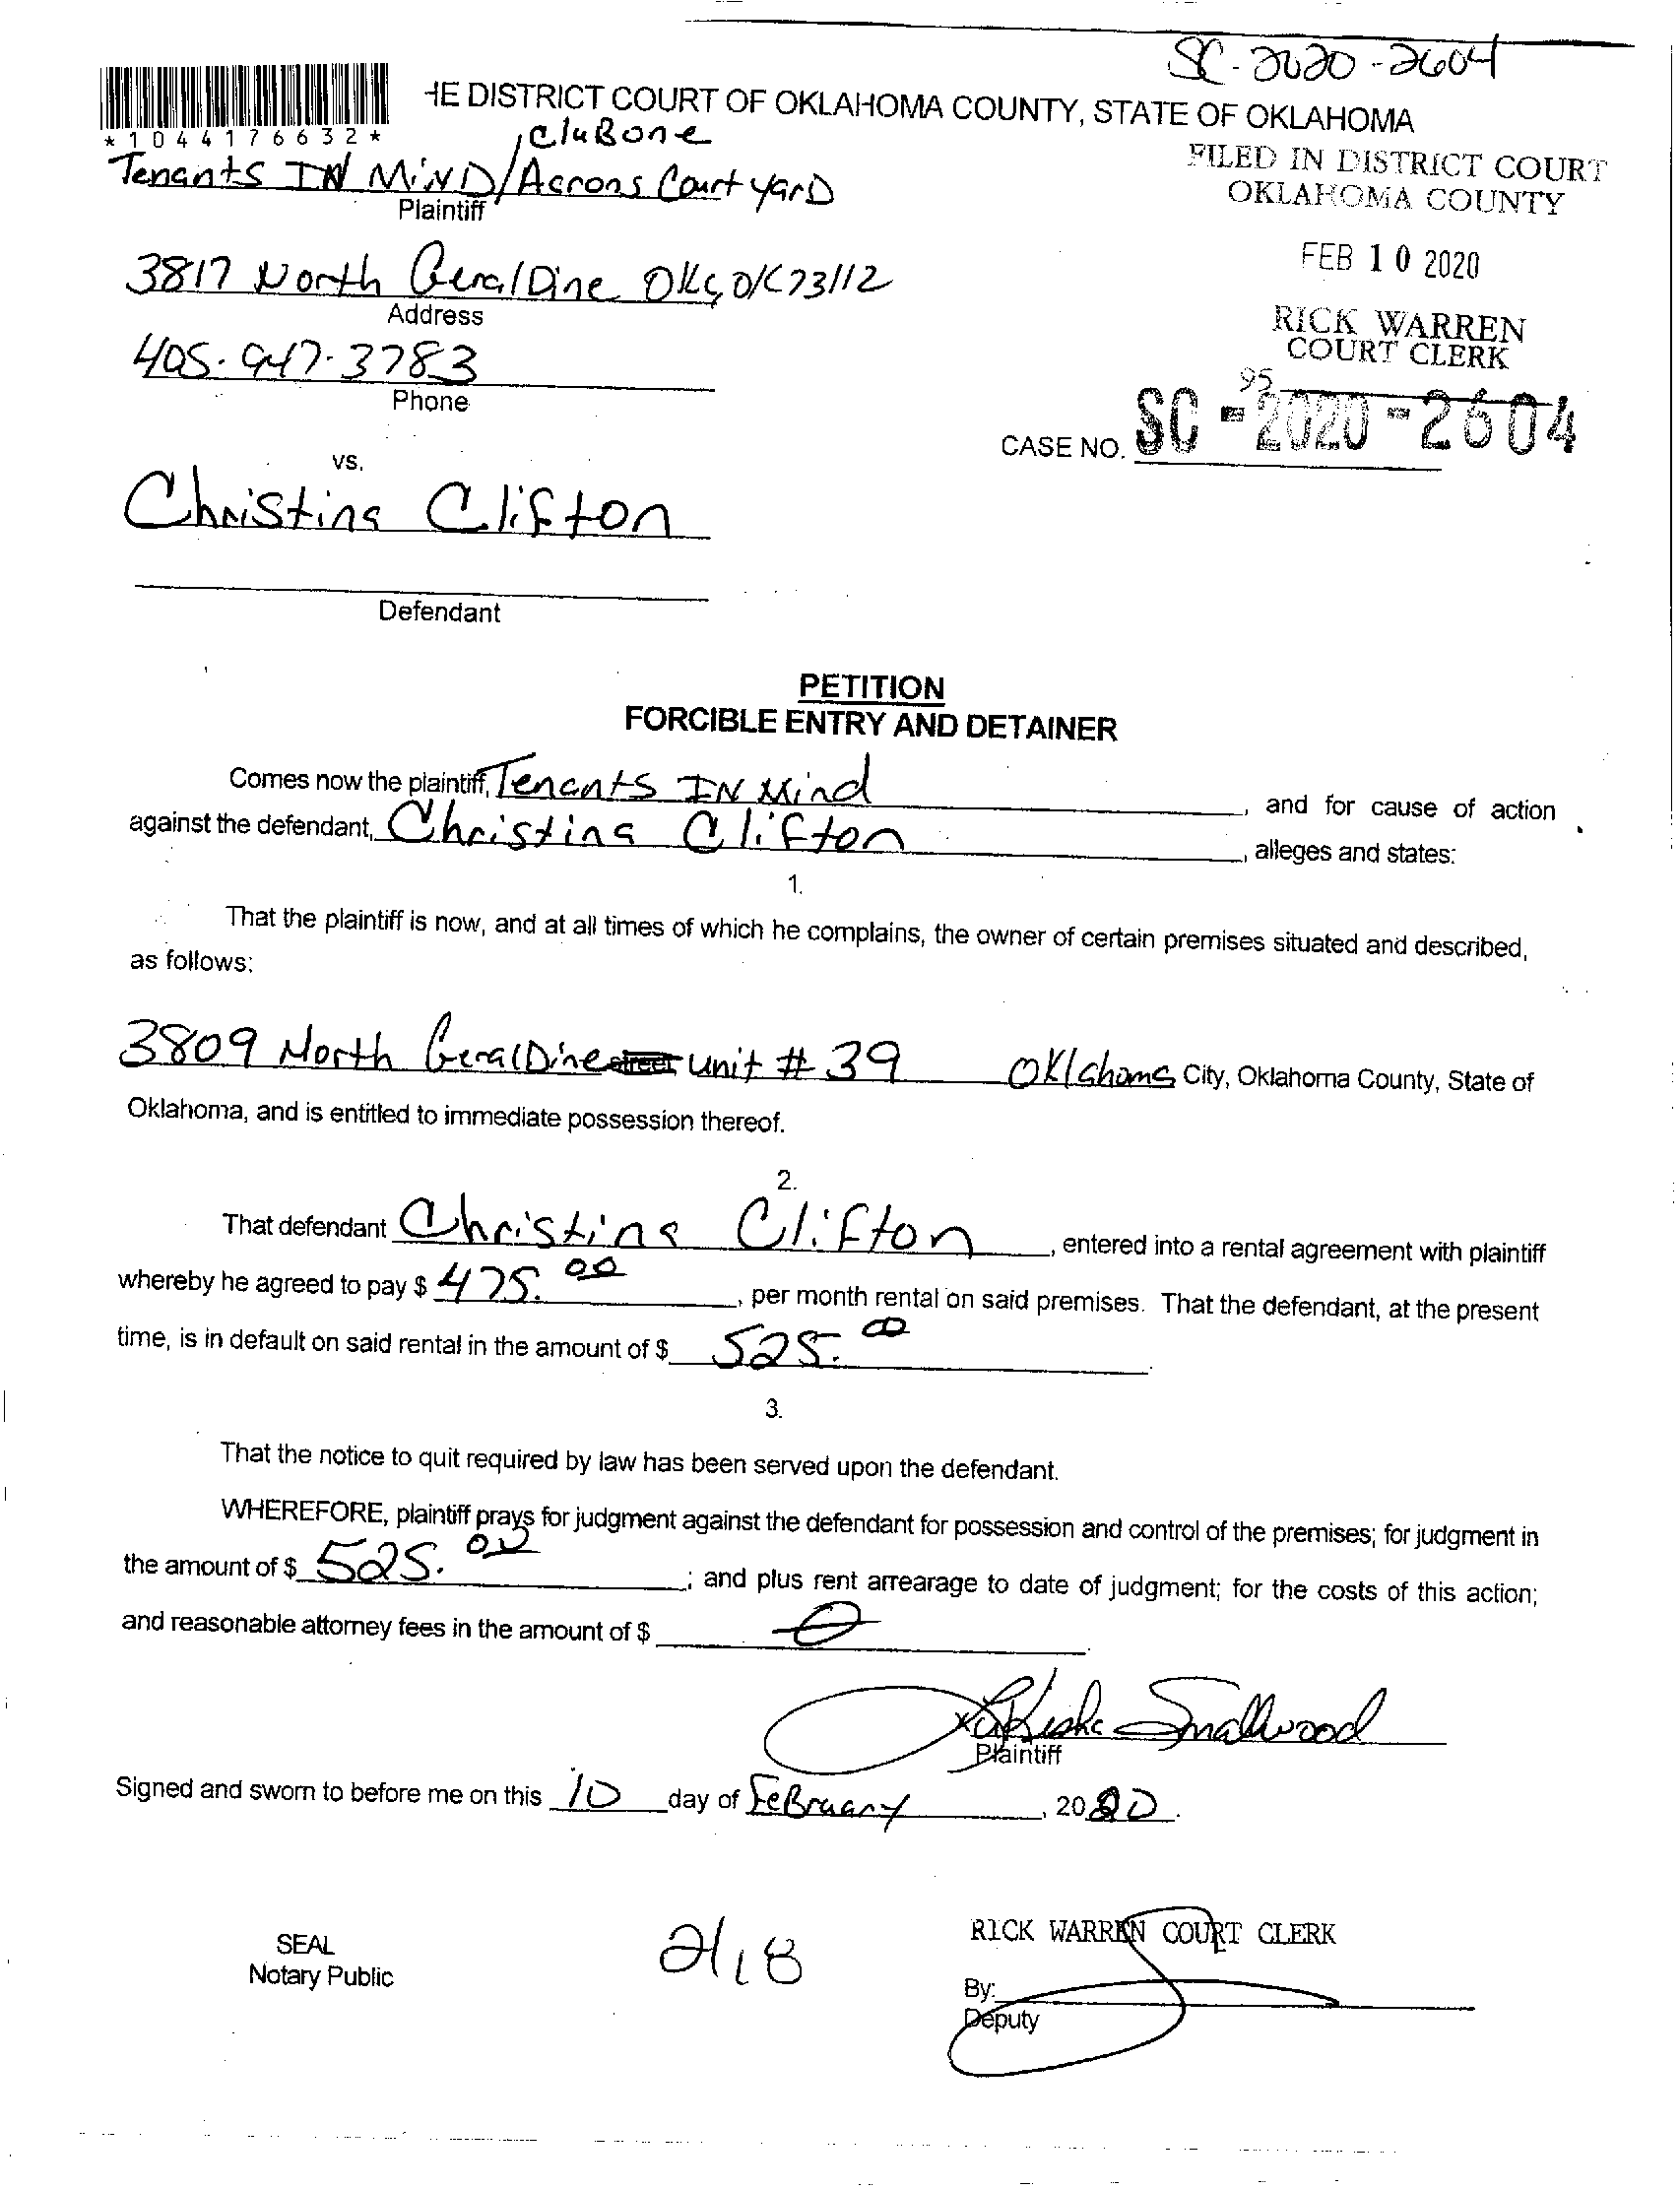 SC-2020-2604
HE DISTRICT COURT OF OKLAHOMA COUNTY, STATE OF OKLAHOMA
*1044176632*
CluBone
Tenants IN MiND/Acrons CourtyarD
Plaintiff
FILED IN DISTRICT COURT
OKLAHOMA COUNTY
FEB 10 2020
RICK WARREN
COURT CLERK
95
3817 North GeralDine OKC, OK 73112
Address
405-947-3783
Phone
CASE NO. SC-2020-2604
vs.
Christina Clifton
Defendant
PETITION
FORCIBLE ENTRY AND DETAINER
Comes now the plaintiff, Tenants IN Mind, and for cause of action
against the defendant, Christina Clifton, alleges and states:
1.
That the plaintiff is now, and at all times of which he complains, the owner of certain premises situated and described,
as follows:
3809 North GeralDine street unit # 39 Oklahoma City, Oklahoma County, State of
Oklahoma, and is entitled to immediate possession thereof.
2.
That defendant Christina Clifton, entered into a rental agreement with plaintiff
whereby he agreed to pay $ 475.00, per month rental on said premises. That the defendant, at the present
time, is in default on said rental in the amount of $ 525.00
3.
That the notice to quit required by law has been served upon the defendant.
WHEREFORE, plaintiff prays for judgment against the defendant for possession and control of the premises; for judgment in
the amount of $ 525.00; and plus rent arrearage to date of judgment; for the costs of this action;
and reasonable attorney fees in the amount of $ 0
LaKisha Smallwood
Plaintiff
Signed and sworn to before me on this 10 day of FeBruary, 2020.
SEAL
Notary Public
2/18
RICK WARREN COURT CLERK
By:
Deputy